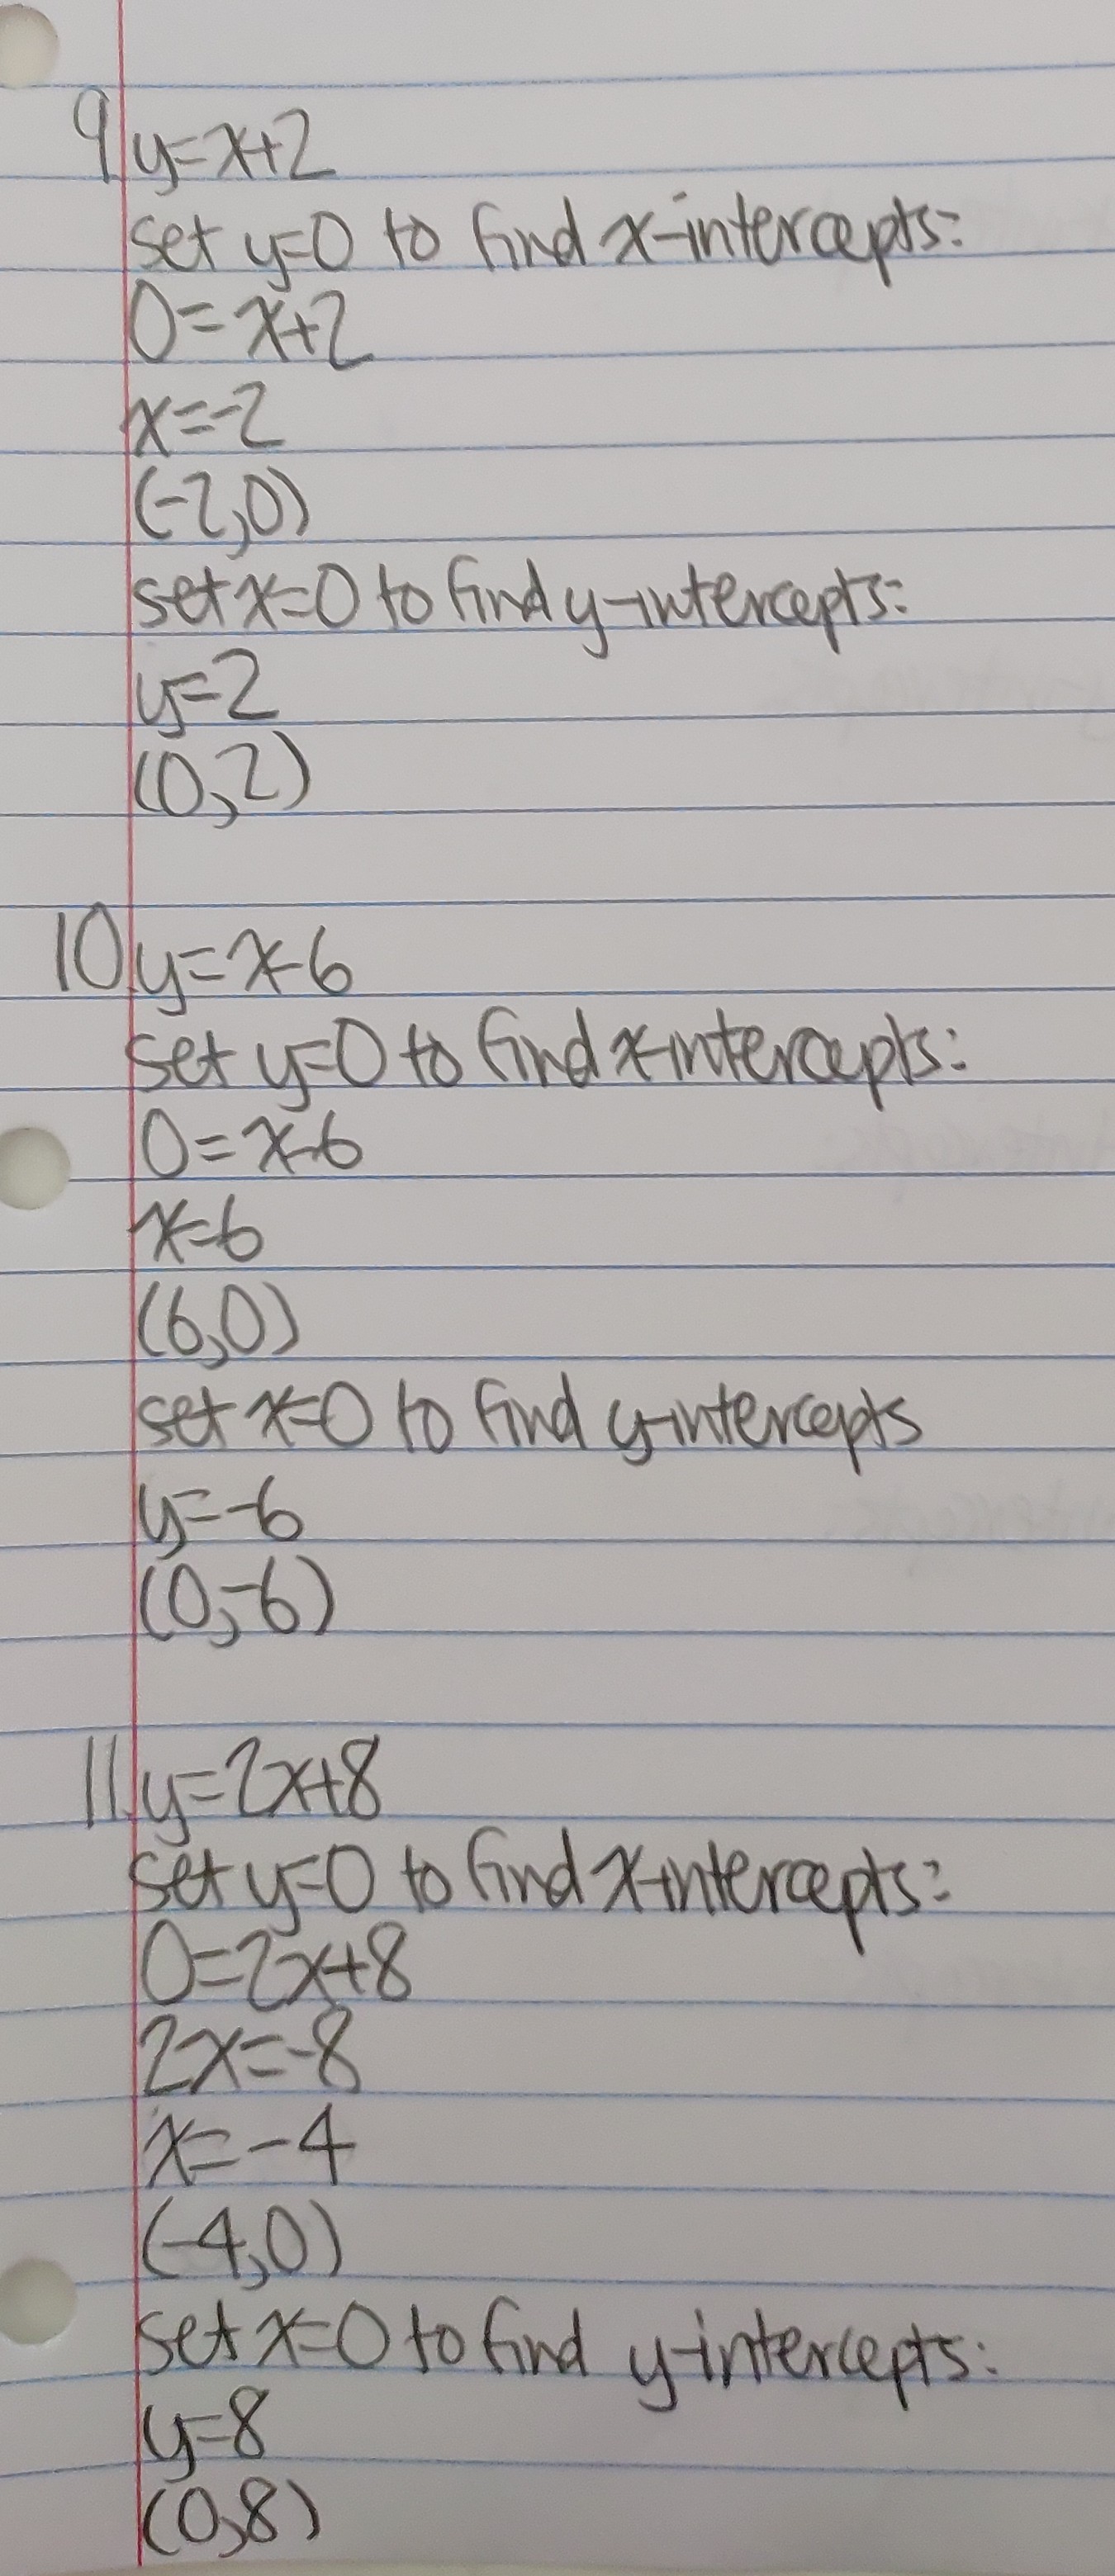 9. y=x+2
set y=0 to find x-intercepts:
0=x+2
x=-2
(-2,0)
set x=0 to find y-intercepts:
y=2
(0,2)
10. y=x-6
set y=0 to find x-intercepts:
0=x-6
x=6
(6,0)
set x=0 to find y-intercepts
y=-6
(0,-6)
11. y=2x+8
set y=0 to find x-intercepts:
0=2x+8
2x=-8
x=-4
(-4,0)
set x=0 to find y-intercepts:
y=8
(0,8)